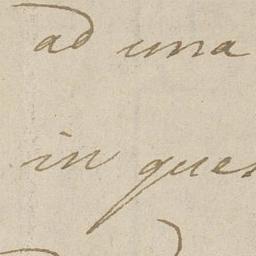 ad una
in que